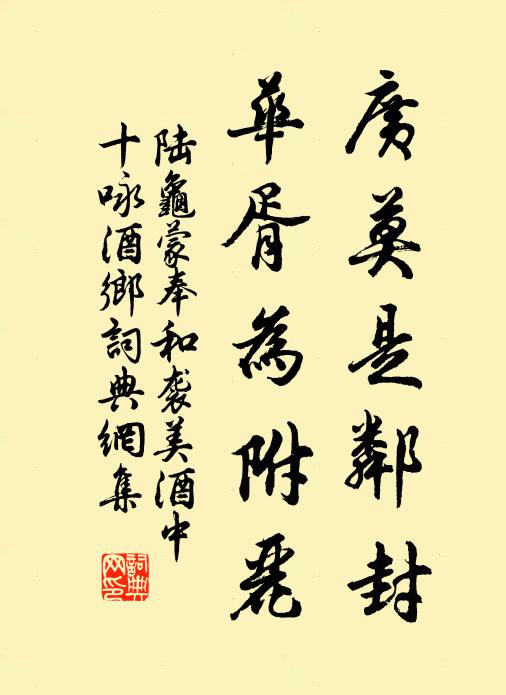 廣莫是鄰封
華胥為附麗
陸龜蒙奉和袭美酒中
十咏酒鄉詞典網集
詞典
网印